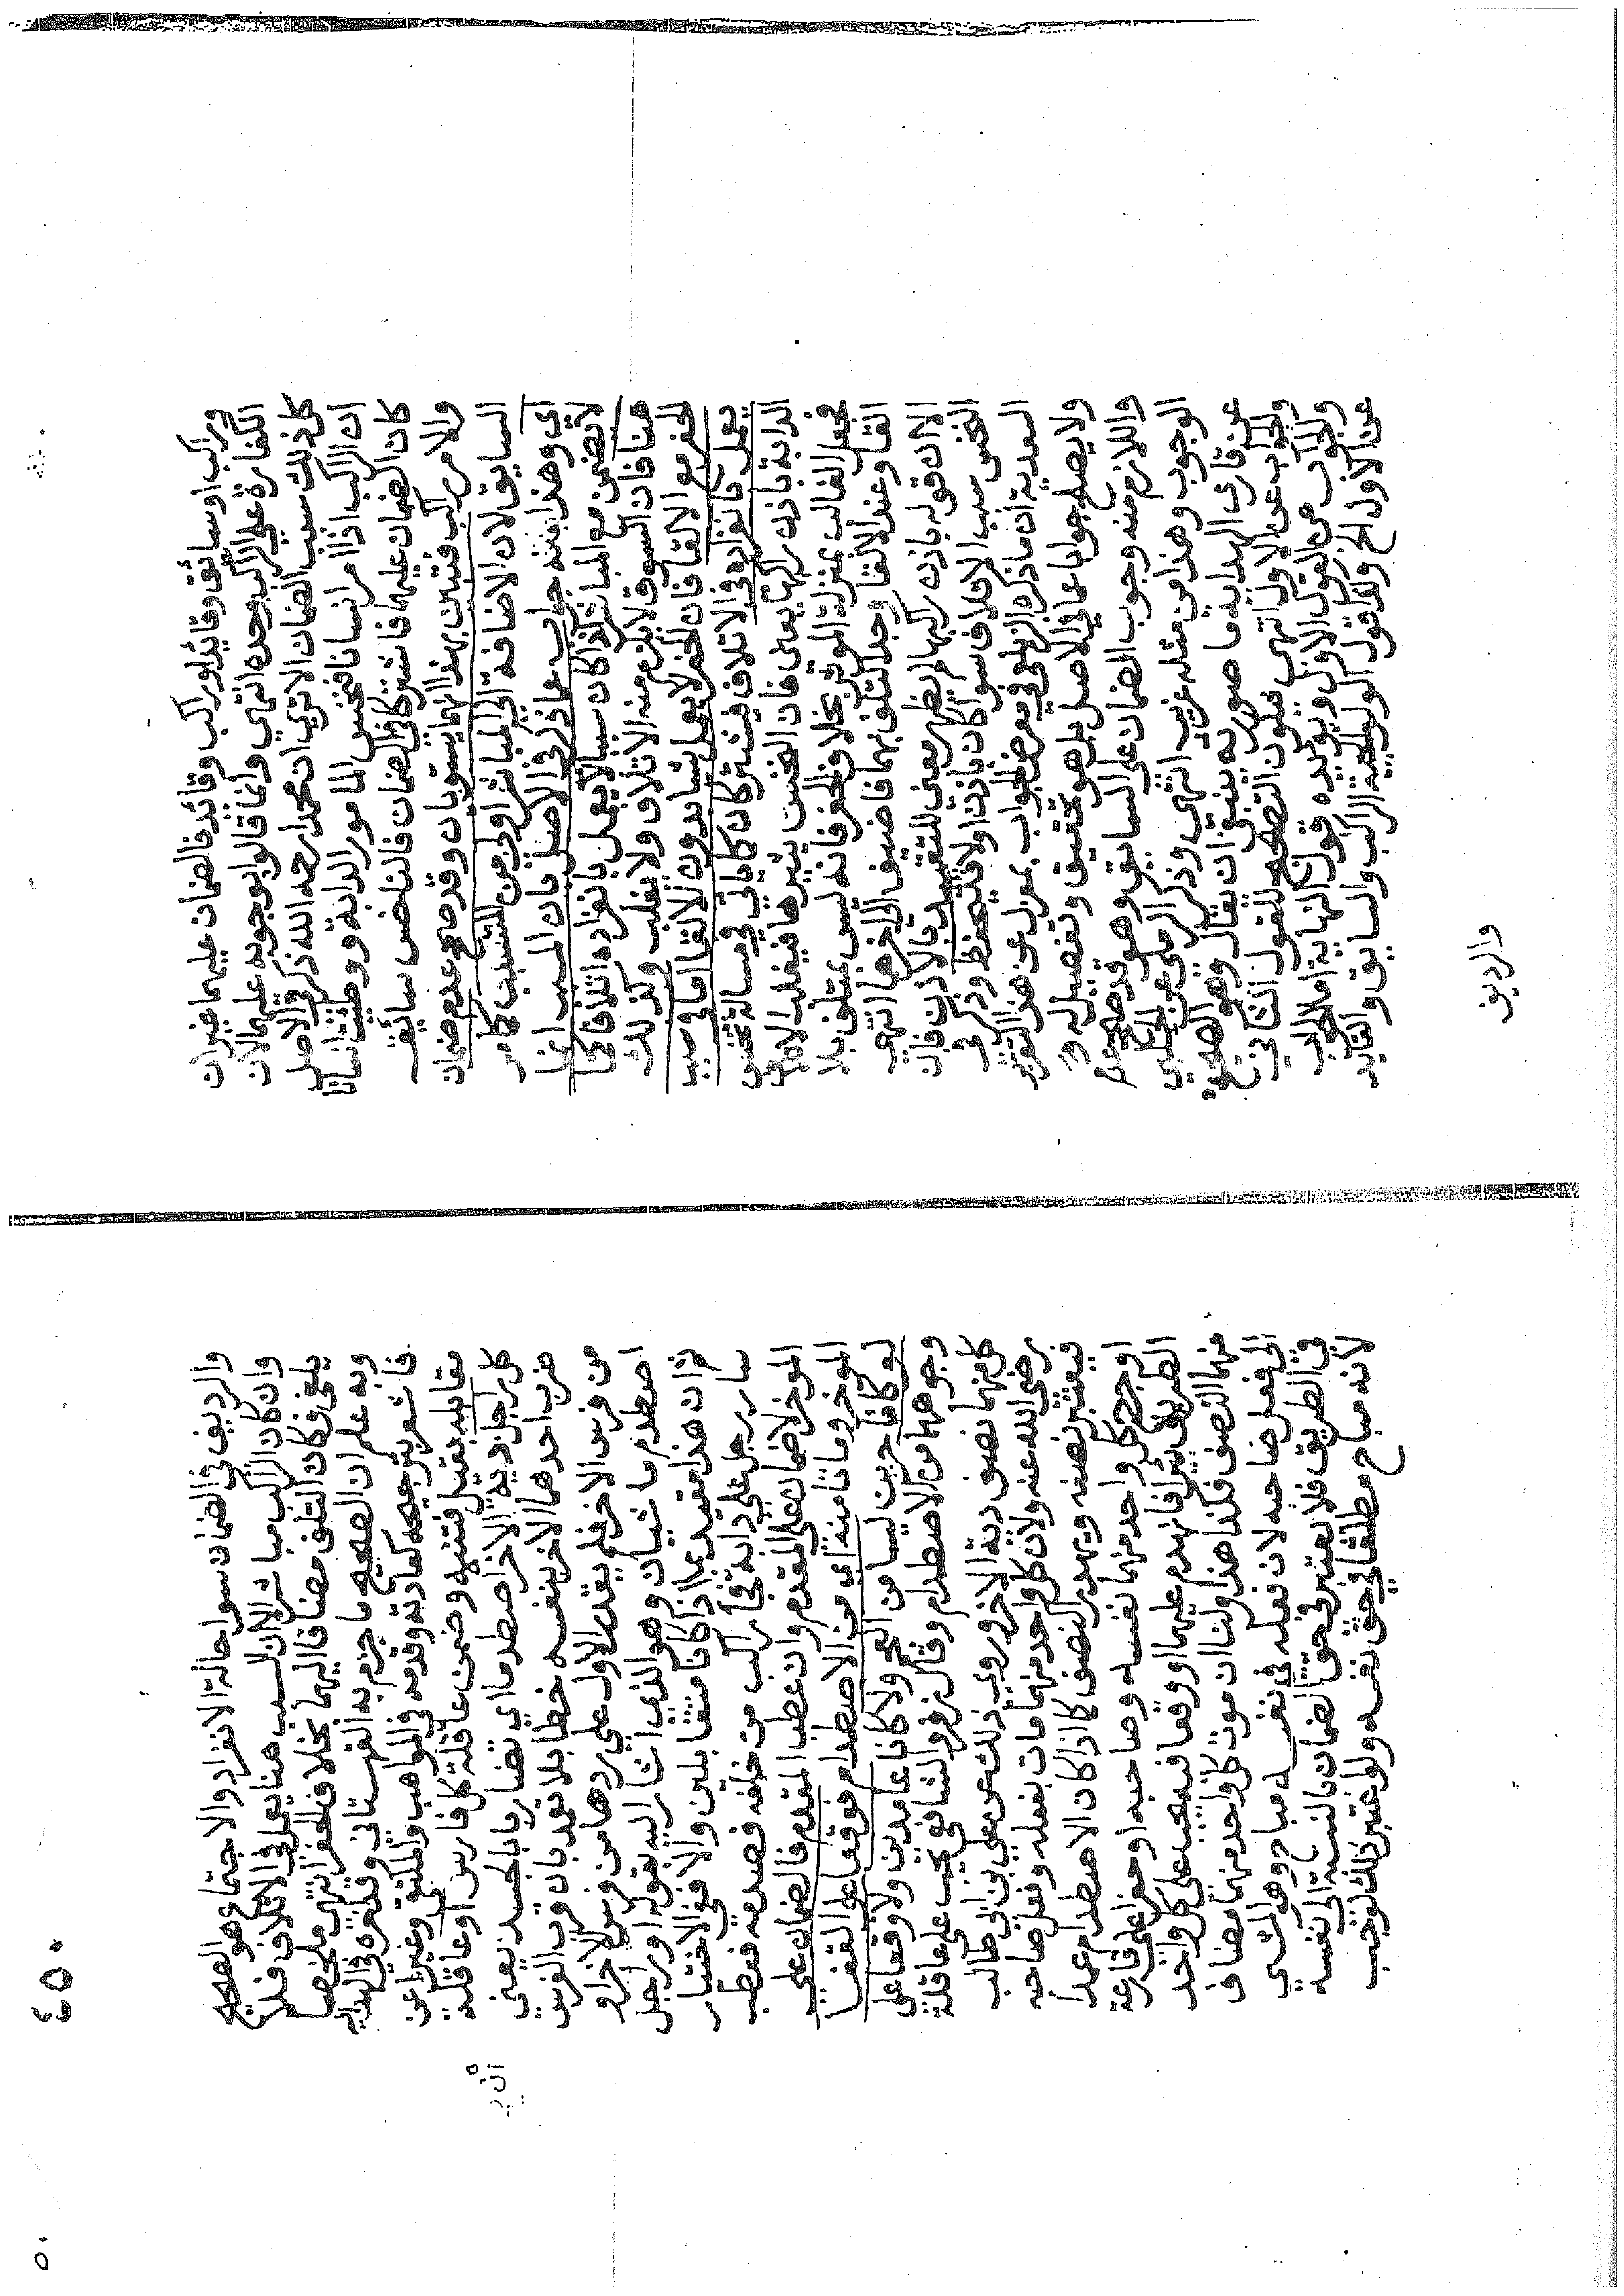 وراكب او سائق وقايد او راكب وقائد فالضمان عليهما غير ان
الكفارة علي الراكب وحده انتهي وانما قالوا بوجوبه عليهما لان
كل ذلك سبب الضمان الا تري ان محمدا رحمه الله ذكر في الاصل
ان الراكب اذا امر انسانا فنخس المامور الدابة ووطيت انسانا
كان الضمان عليهما فاشتركا في الضمان فالناخس سايق
والامر راكب فتبين بهذا انهما يستويان وقد صحح عدم ضمان
السايق لان الاضافة الي المباشر اولي من المتسبب كما مر
اي وهذا جواب عما ذكر في الاصل بان المسبب انما
لا يضمن مع المباشر اذا كان سببا لا يعمل بانفراده اتلافا كما
هنا فان السوق لا يلزم منه الاتلاف ولا يغلب وكذلك
الحفر مع الالقا فان الحفر لا يعمل شيا بدون الالقا اما في سبب
يعمل بانفراده في الاتلاف فيشتركان كما ياتي في مسالة نخس
الدابة باذن راكبها يعني فان النخس يثيرها فيغلب الاتلاف
فجعل الغالب بمنزلة الموثر بخلاف الحفر فانه ليس بمتلف بلا
القا وعند الالقا وجد التلف بهما فاضيف الي اخرهما انتهي
الا ان قوله باذن راكبها لم يظهر معني للتقييد بالاذن فان
النخس سبب الاتلاف سوا كان باذن اولا فليحفظ وذكر في
السعدية ان ما ذكره الزيلعي في معرض الجواب بمعزل عن هذا التقرير
ولا يصلح جوابا عما في الاصل بل هو تحقيق وتفصيل له و
واللازم منه وجوب الضمان علي السايق وهو قد صحح عدم
الوجوب وهذا من مثله غريب انتهي وذكر الرملي عن الحلبي
عن قاري الهداية ما صورته ينبغي ان يقال وهو الصحيح
والجواب عن الاول انتهي فيكون التصحيح للقول الثاني
والجواب عن القول الاول ويويده قول النهاية اما الجواب
عن الاول الخ ولقد الولوالجية الراكب والسايق والقايد
والرديف
٤٥٠
والرديف في الضمان سوا حالة الانفراد والاجتماع هو الصحيح
وان كان الراكب مباشرا لان السبب هنا يعمل في الاتلاف فلا
يلغي فكان التلف مضافا اليهما بخلاف الحفر انتهي ملخصا
وبه علم ان الصحيح ما جزم به القهستاني وقد اخره في الهداية
فاشعر بترجيحه كعادته وقدمه في المواهب والملتقي وغيرها عن
مقابله بقيل فتنبه وضمن عاقلة كل فارس او عاقلة
كل راجل دية الاخر اصطدما اي تضاربا بالجسد يعني
ضرب احدهما الاخر بنفسه خطا بلا تعمد بان قرب الفرس
من فرس الاخر فلم يقدر الاول علي ردها من فرس الاخر او
اصطدم ماشيان وهو الذي اشار اليه بقوله او راجل
ثم ان هذا مقيد بما اذا كانا متقابلين والا ففي الاختيار
سار رجل علي دابة فجا راكب من خلفه فصدمه فعطب
الموخر لا ضمان علي المقدم وان عطب المقدم فالضمان علي
الموخر وماتا منه اي من الاصطدام فوقعا علي القفا
لو كانا حرين ليسا من العجم ولا كانا عامدين ولا وقعا علي
وجوههما من الاصطدام وقال زفر والشافعي يجب علي عاقلة
كل منهما نصف دية الاخر وروي ذلك عن علي بن ابي طالب
رضي الله عنه ولان كل واحد منهما مات بفعله وفعل صاحبه
فيعتبر نصفه ويهدر النصف كما اذا كان الاصطدام عمدا
او جرح كل واحد منهما نفسه وصاحبه او حفرا علي قارعة
الطريق بيرا فانهدم عليهما او وقعا فيه يجب علي كل واحد
منهما النصف فكذا هذا ولنا ان موت كل واحد منهما مضاف
الي فعل صاحبه لان فعله في نفسه مباح وهو المشي
في الطريق فلا يعتبر في حق الضمان بالنسبة الي نفسه
لانه مباح مطلقا في حق نفسه ولو اعتبر ذلك لوجب